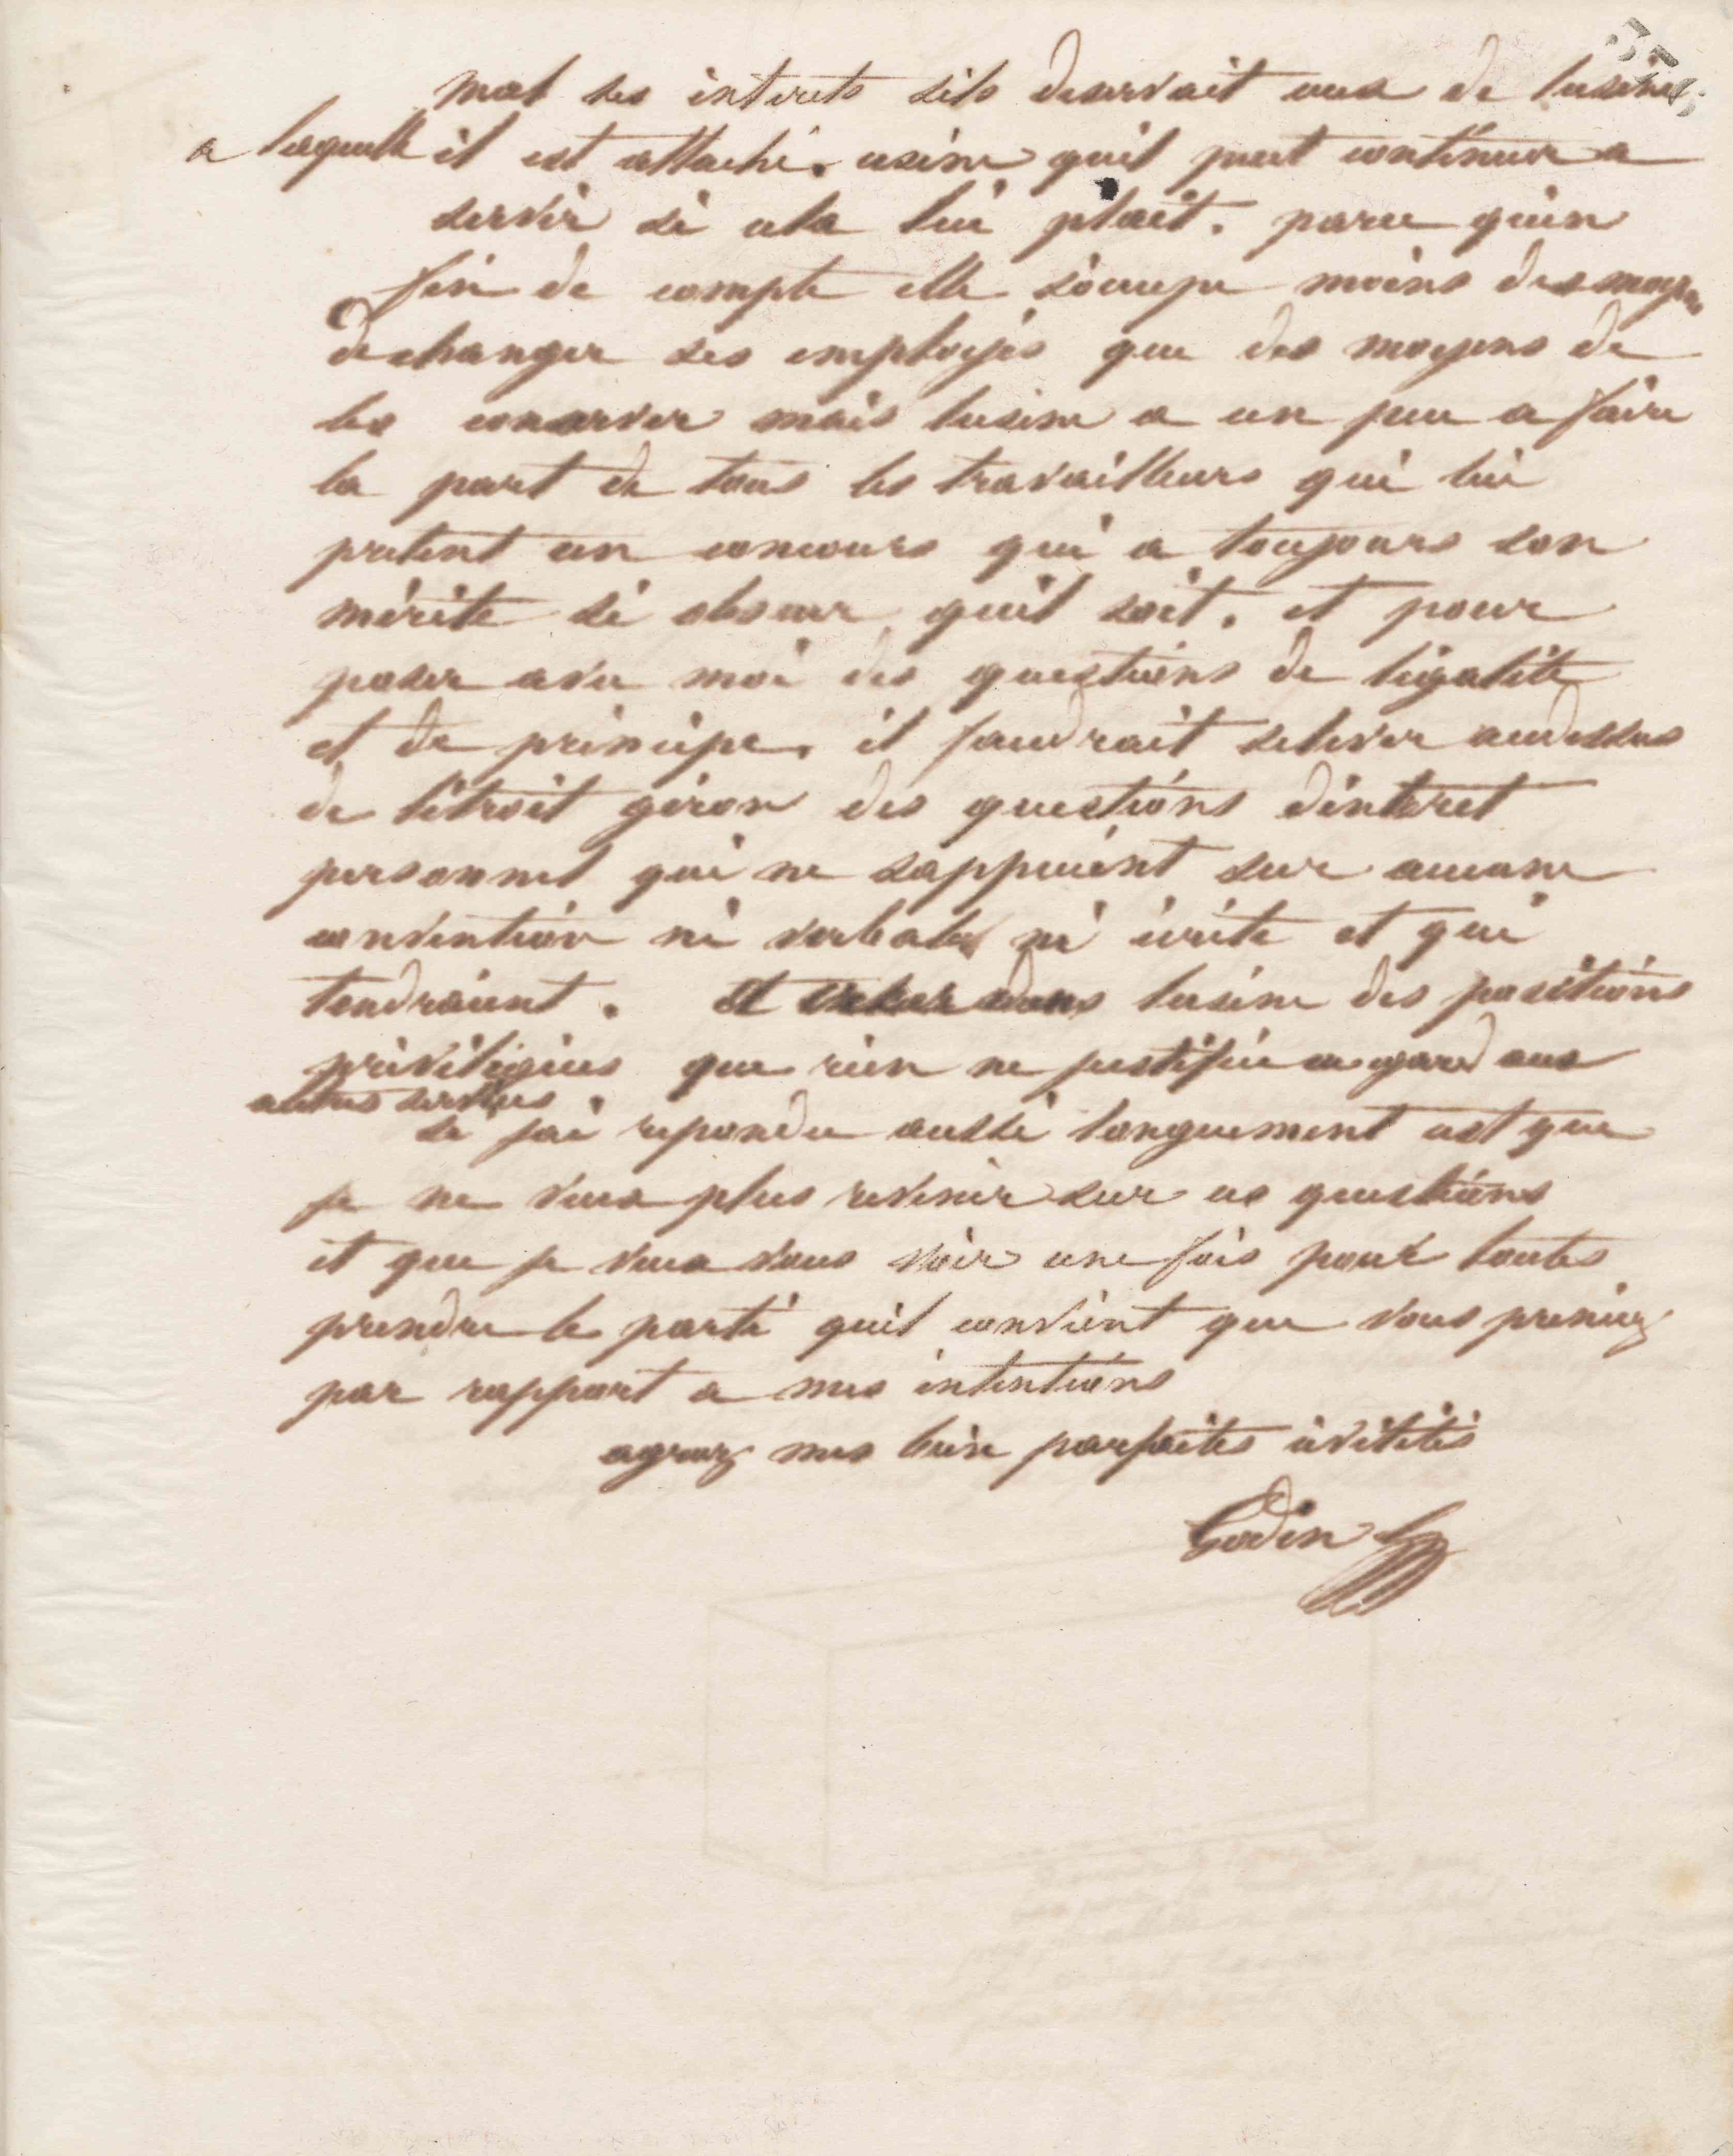 mal ses interets sils deservait ceux de lusine
a laquelle il est attaché. usine quil peut continuer a
servir si cela lui plait. parce quen
fin de compte elle soccupe moins des moyens
dechanger ses employés que des moyens de
les conserver mais lusine a un peu a faire
la part de tous les travailleurs qui lui
pretent un concours qui a toujours son
mérite si obscur quil soit. et pour
poser avec moi des questions de légalité
et de principe. il faudrait selever audessus
de létroit giron des questions dinteret
personnel qui ne sappuient sur aucune
convention ni verbale ni écrite et qui
tendraient. et créer dans lusine des positions
privilégiées que rien ne justifie eu egard aux
autres services.
si jai repondu aussi longuement cest que
je ne veux plus revenir sur ces questions
et que je veux vous voir une fois pour toutes
prendre le parti quil convient que vous preniez
par rapport a mes intentions
agreez mes bien parfaites civilités
Godin